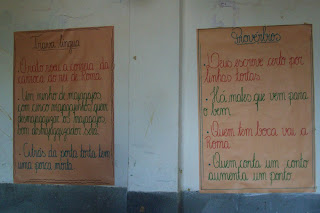 Trava língua
O rato roeu a correia da
carroça do rei de Roma.
• Um ninho de mafagafos
com cinco mafagafinhos quem
desmafagafizar os mafagafos
bom desmafagafizador será.
• Atrás da porta torta tem
uma porca morta.
Provérbios
• Deus escreve certo por
linhas tortas.
• Há males que vem para
o bem.
• Quem tem boca vai a
Roma.
• Quem conta um conto
aumenta um ponto.